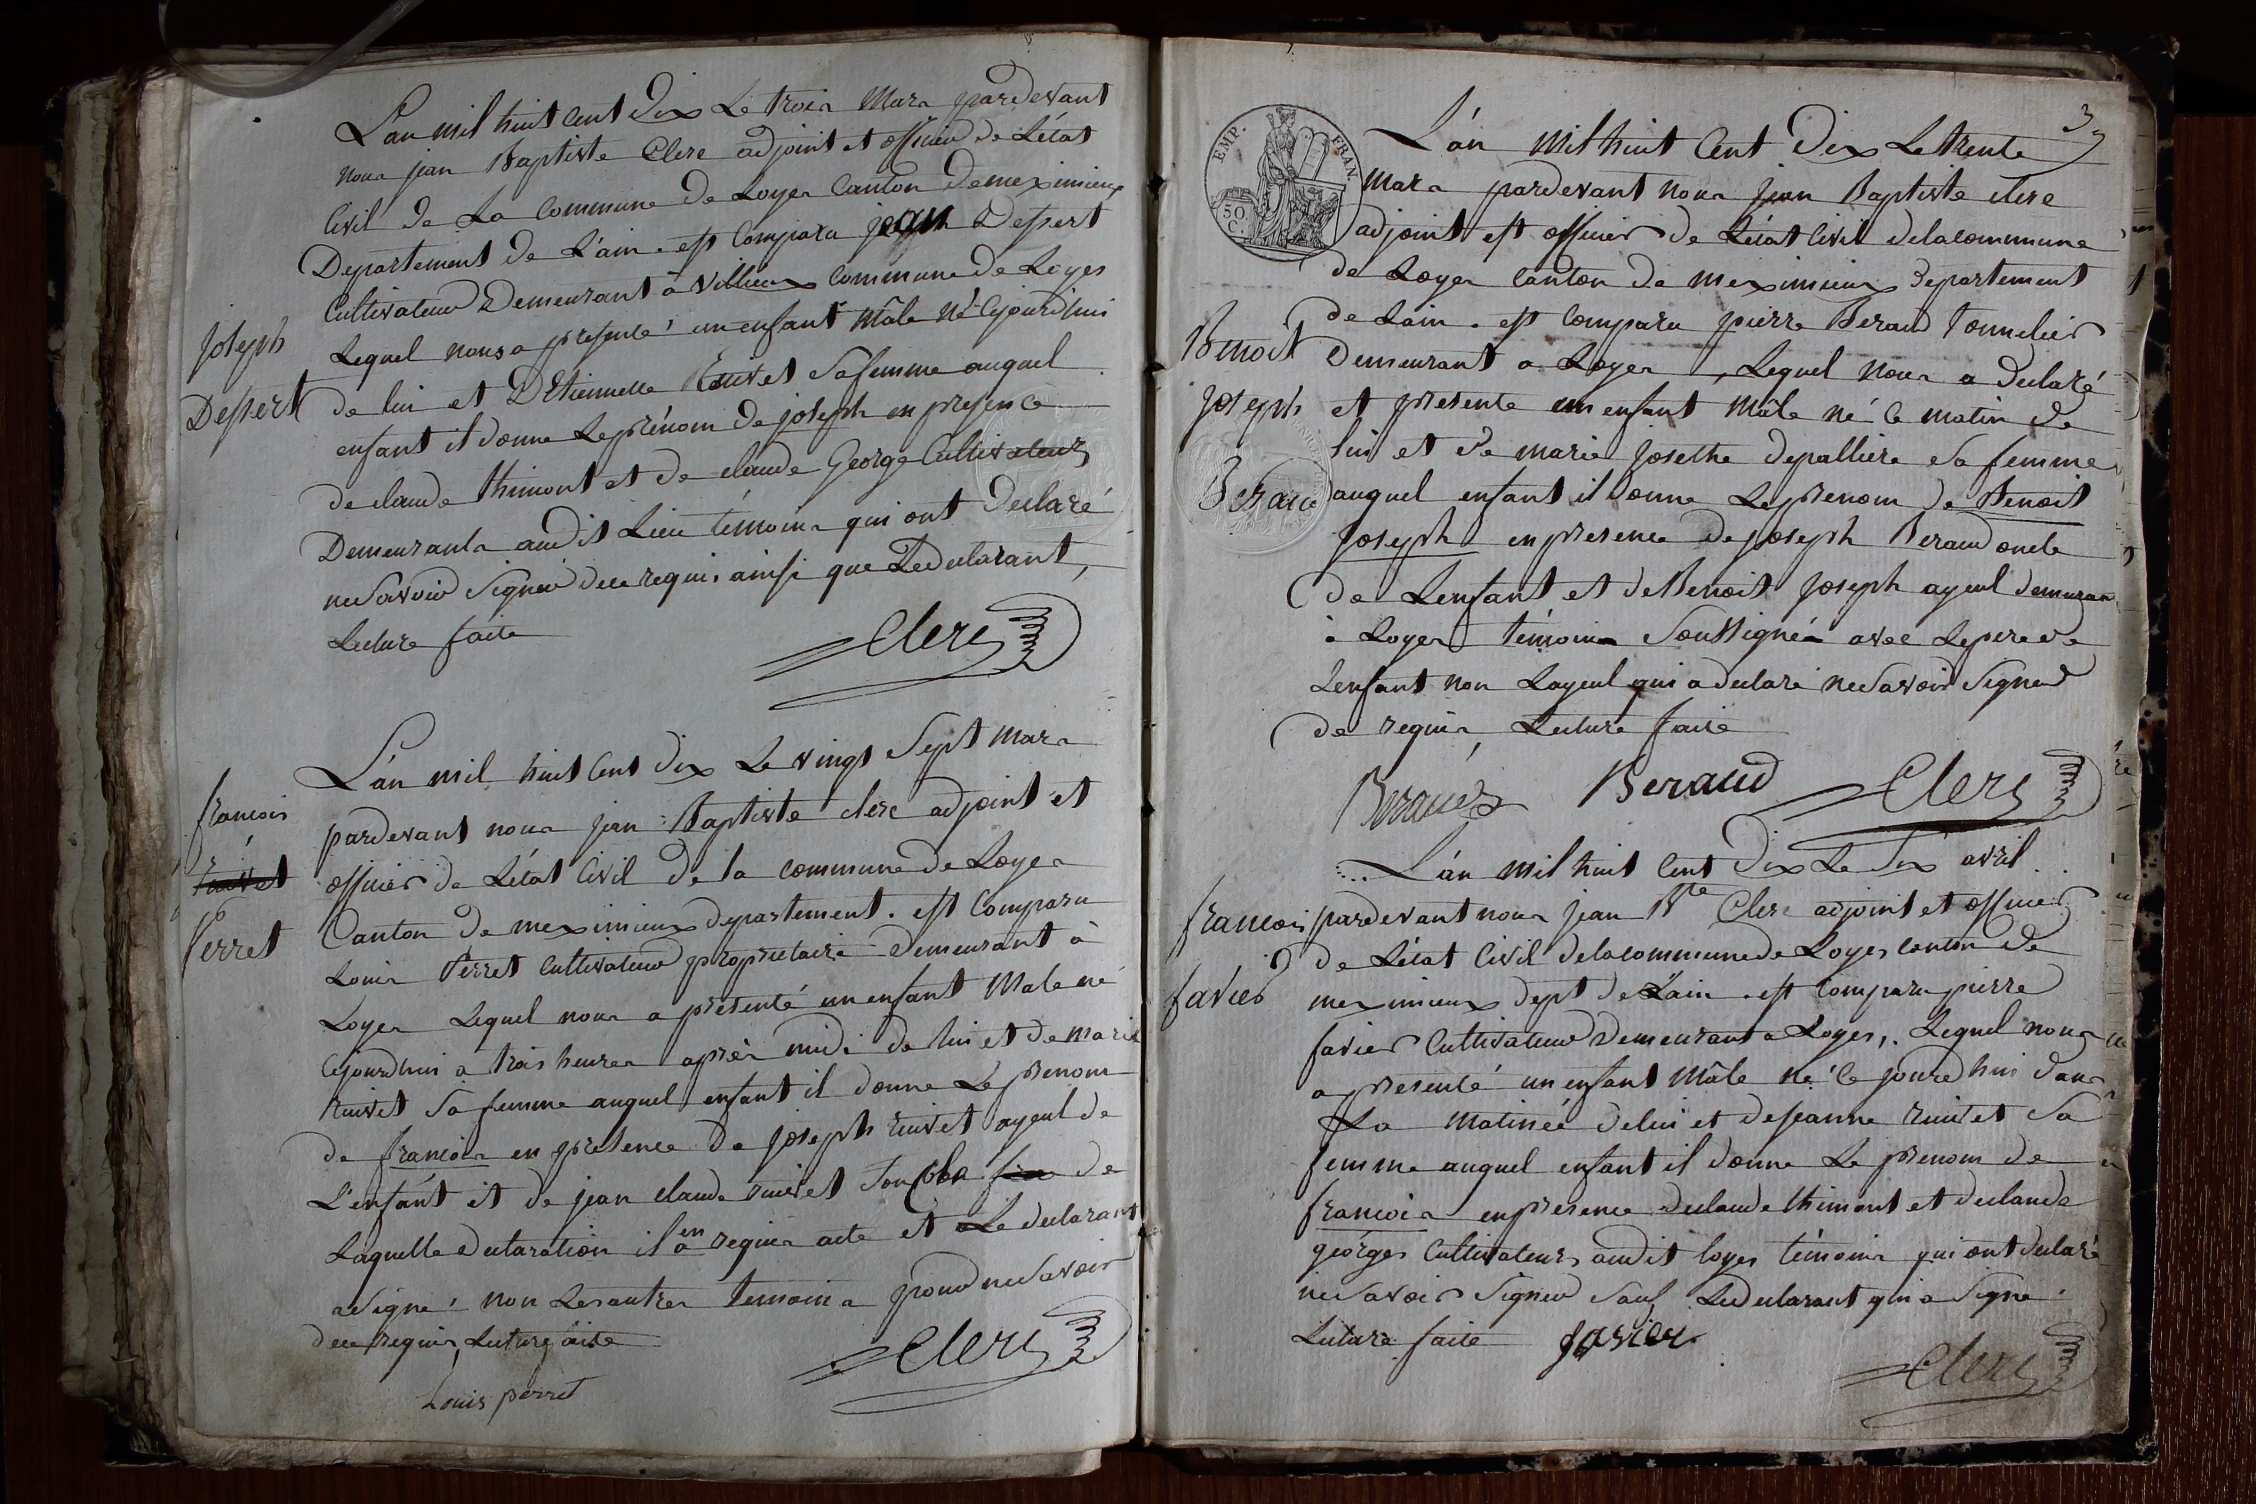 L'an mil huit cent dix Le trois Mars pardevant
nous jean Baptiste Clerc adjoint et officier de L'état
Civil de La Commune de Loyes Canton de meximieux
Departement de L'ain. est Comparu jean Dessert
Cultivateur Demeurant à villieux commune de Loyes
Lequel nous a presenté un enfant Mâle Né Cejourd'hui
Joseph
Dessert
de lui et D'Etiennette Ruivet Sa femme auquel
enfant il donne Le prénom de joseph en presence
de claude thimont et de claude George Cultivateurs
Demeurants audit Lieu témoins qui ont Declaré
ne Savoir Signer de ce requis ainsi que Le declarant,
Lecture faite
Clerc
L'an mil huit Cent dix Le vingt Sept Mars
francois
ruivet
Perret
pardevant nous jean Baptiste clerc adjoint et
officier de L'état Civil de la commune de Loyes
Canton de meximieux departement. est Comparu
Louis Perret Cultivateur proprietaire demeurant à
Loyes Lequel nous a présenté un enfant Male né
Cejourd'hui a trois heures après midi de lui et de marie
ruivet Sa femme auquel enfant il donne Le prenom
de francois en presence de joseph ruivet ayeul de
L'enfant et de jean claude ruivet Son de
Laquelle declaration il en a requis acte et Le declarant
a Signé non Les autres temoins pour ne Savoir
de ce requis, Lecture faite
Clerc
Louis perret
3
EMP. FRAN.
50 C.
L'an Mil huit Cent Dix Le trente
Mars pardevant nous Jean Baptiste clerc
adjoint est officier de L'état Civil de la commune
de Loyes canton de meximieux departement
de Lain. est Comparu pierre Beraud tonnelier
Benoit
Joseph
Beraud
Demeurant a Loyes, Lequel nous a declaré
et presente un enfant Mâle né Ce matin de
lui et de marie Josethe depalliere Sa femme
auquel enfant il donne Le prenom de Benoit
Joseph en presence de joseph Beraud oncle
de Lenfant et de Benoit Joseph ayeul demeuran
à Loyes témoins Soussignés avec Le pere de
Lenfant non Layeul qui a declaré ne Savoir Signer
de requis, Lecture faite
Beraud Beraud Clerc
L'an mil huit Cent Dix Le Six avril
francois
favier
pardevant nous jean Bte Clerc adjoint et officier
de L'état Civil de la commune de Loyes canton de
meximieux dept de L'ain. est Comparu pierre
favier Cultivateur Demeurant a Loyes, Lequel nous
a presenté un enfant Mâle né Ce jourd'hui dans
La Matinée de lui et de jeanne ruivet Sa
femme auquel enfant il donne Le prenom de
francois en presence de claude thimont et de claude
georges Cultivateurs audit loyes témoins qui ont declaré
ne Savoir Signer Sauf Le declarant qui a Signé.
Lecture faite favier
Clerc